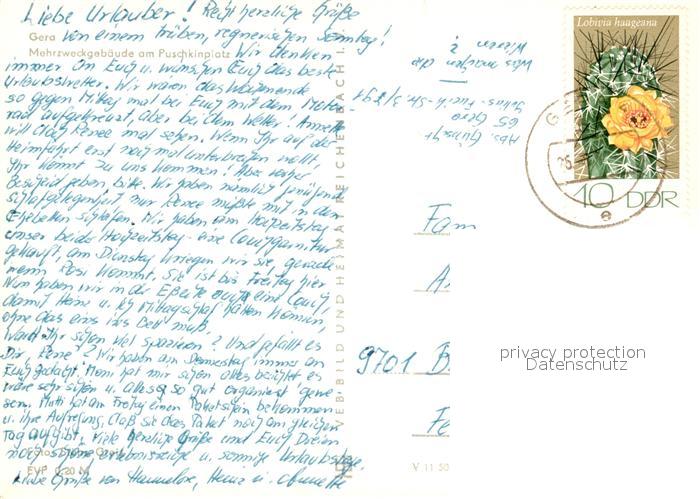 Liebe Urlauber! Recht herzliche Grüße
Gera
von einem trüben, regnerischen Sonntag!
Mehrzweckgebäude am Puschkinplatz
Wir denken
immer an Euch u. wünschen Euch das beste
Urlaubswetter. Wir waren das Wochenende
so gegen Mittag mal bei Euch mit dem Motor-
rad aufgekreuzt, aber bei dem Wetter! Annette
will doch Renee mal sehen. Wenn Ihr auf der
Heimfahrt erst noch mal unterbrechen wollt,
Ihr könnt zu uns kommen! Aber vorher
Bescheid geben, bitte. Wir haben nämlich genügend
Schlafgelegenheit nur Renee müßte mit in den
Ehebetten schlafen. Wir haben am Hochzeitstag -
unser beider Hochzeitstag - eine Couchgarnitur
gekauft, am Dienstag kriegen wir sie, gerade
wenn Rosi kommt. Sie ist bis Freitag hier.
Nun haben wir in der Eßecke auch eine Couch,
damit Heinz u. ich Mittagschlaf halten können,
ohne das eins ins Bett muß.
Wart Ihr schon viel spazieren? Und gefällt es
Dir, Renee? Wir haben am Donnerstag immer an
Euch gedacht. Momi hat mir schon alles berichtet es
wäre sehr schön u. alles so gut organisiert gewe-
sen. Mutti hat am Freitag einen Paketschein bekommen
u. ihre Aufregung, daß sie das Paket noch am gleichen
Tag aufgibt. Viele herzliche Grüße und Euch Dreien
noch schöne Erlebnisse u. sonnige Urlaubstage.
Liebe Grüße von Hannelore, Heinz u. Annette
EVP 0,20 M
VEB BILD UND HEIMAT REICHENBACH I.
V 11 50
Was machen die
Wiesen?
Abs. Günscht
65 Gera
Fam
A
9701 B
Fe
Lobivia haageana
10 DDR
e
privacy protection
Datenschutz